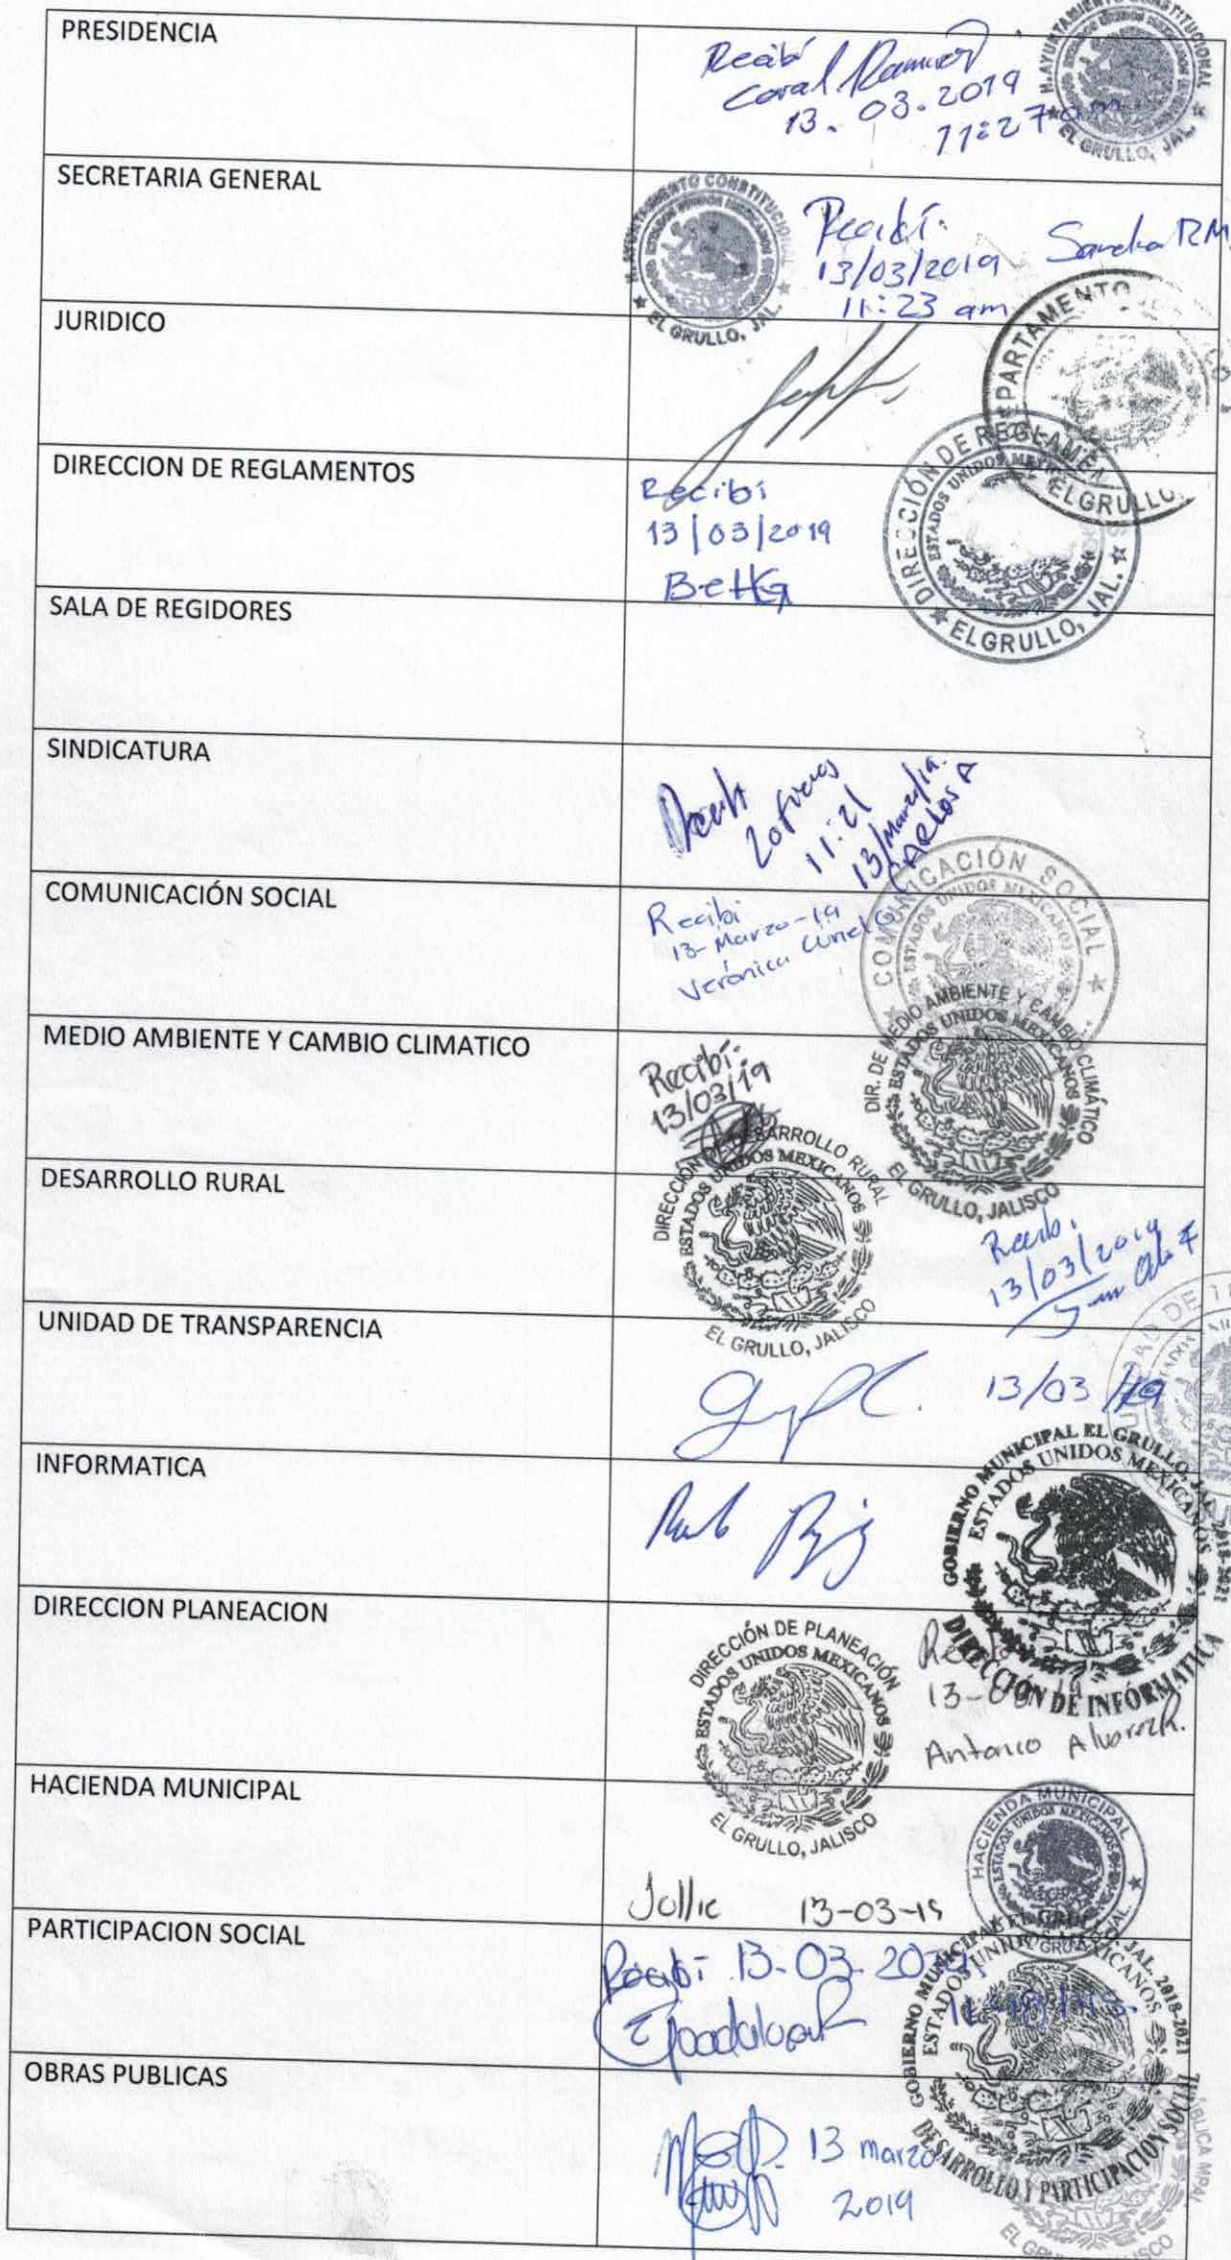 PRESIDENCIA
Recibí
Coral Ramirez
13. 03. 2019
11:27 am
H. AYUNTAMIENTO CONSTITUCIONAL
EL GRULLO, JAL.
SECRETARIA GENERAL
H. AYUNTAMIENTO CONSTITUCIONAL
ESTADOS UNIDOS MEXICANOS
EL GRULLO, JAL.
Recibí.
13/03/2019 Sandra RM
11:23 am
JURIDICO
DEPARTAMENTO
EL GRULLO,
DIRECCION DE REGLAMENTOS
Recibí
13/03/2019
BettG
DIRECCIÓN DE REGLAMENTOS
ESTADOS UNIDOS MEXICANOS
EL GRULLO, JAL.
SALA DE REGIDORES
SINDICATURA
11:21
13/Marzo/19.
CARLOS A
COMUNICACIÓN SOCIAL
Recibi
13-Marzo-19
Verónica Curiel G
COMUNICACIÓN SOCIAL
ESTADOS UNIDOS MEXICANOS
MEDIO AMBIENTE Y CAMBIO CLIMATICO
Recibí.
13/03/19
DIR. DE MEDIO AMBIENTE Y CAMBIO CLIMÁTICO
ESTADOS UNIDOS MEXICANOS
EL GRULLO, JALISCO
DESARROLLO RURAL
DIRECCIÓN DE DESARROLLO RURAL
ESTADOS UNIDOS MEXICANOS
EL GRULLO, JALISCO
Recibi
13/03/2019
UNIDAD DE TRANSPARENCIA
13/03/19
INFORMATICA
GOBIERNO MUNICIPAL EL GRULLO, JAL. 2018-2021
ESTADOS UNIDOS MEXICANOS
DIRECCIÓN DE INFORMATICA
DIRECCION PLANEACION
DIRECCIÓN DE PLANEACIÓN
ESTADOS UNIDOS MEXICANOS
EL GRULLO, JALISCO
Antonio Alvarez R.
HACIENDA MUNICIPAL
HACIENDA MUNICIPAL
ESTADOS UNIDOS MEXICANOS
Jullie 13-03-19
PARTICIPACION SOCIAL
Recibí 13-03-2019
Guadalupe R
GOBIERNO MUNICIPAL EL GRULLO, JAL. 2018-2021
ESTADOS UNIDOS MEXICANOS
DESARROLLO Y PARTICIPACION SOCIAL
OBRAS PUBLICAS
13 marzo
2019